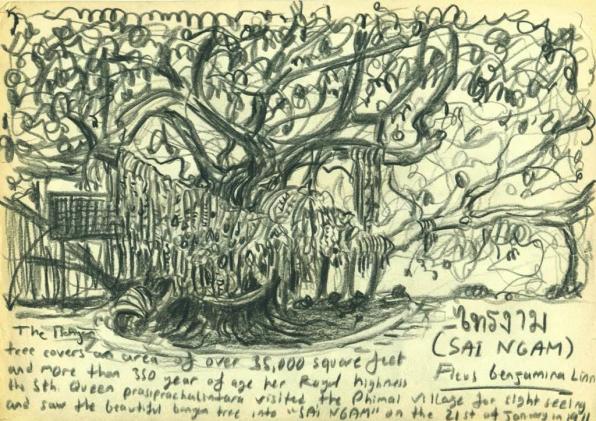 The Banyan
tree covers an area of over 35,000 square feet
and more than 350 year of age her Royal highness
the 5th. Queen visited the Phimai Village for sight seeing
and saw the beautiful banyan tree into "SAI NGAM" on the 21st of January in
ไทรงาม
(SAI NGAM)
Ficus bengamina Linn